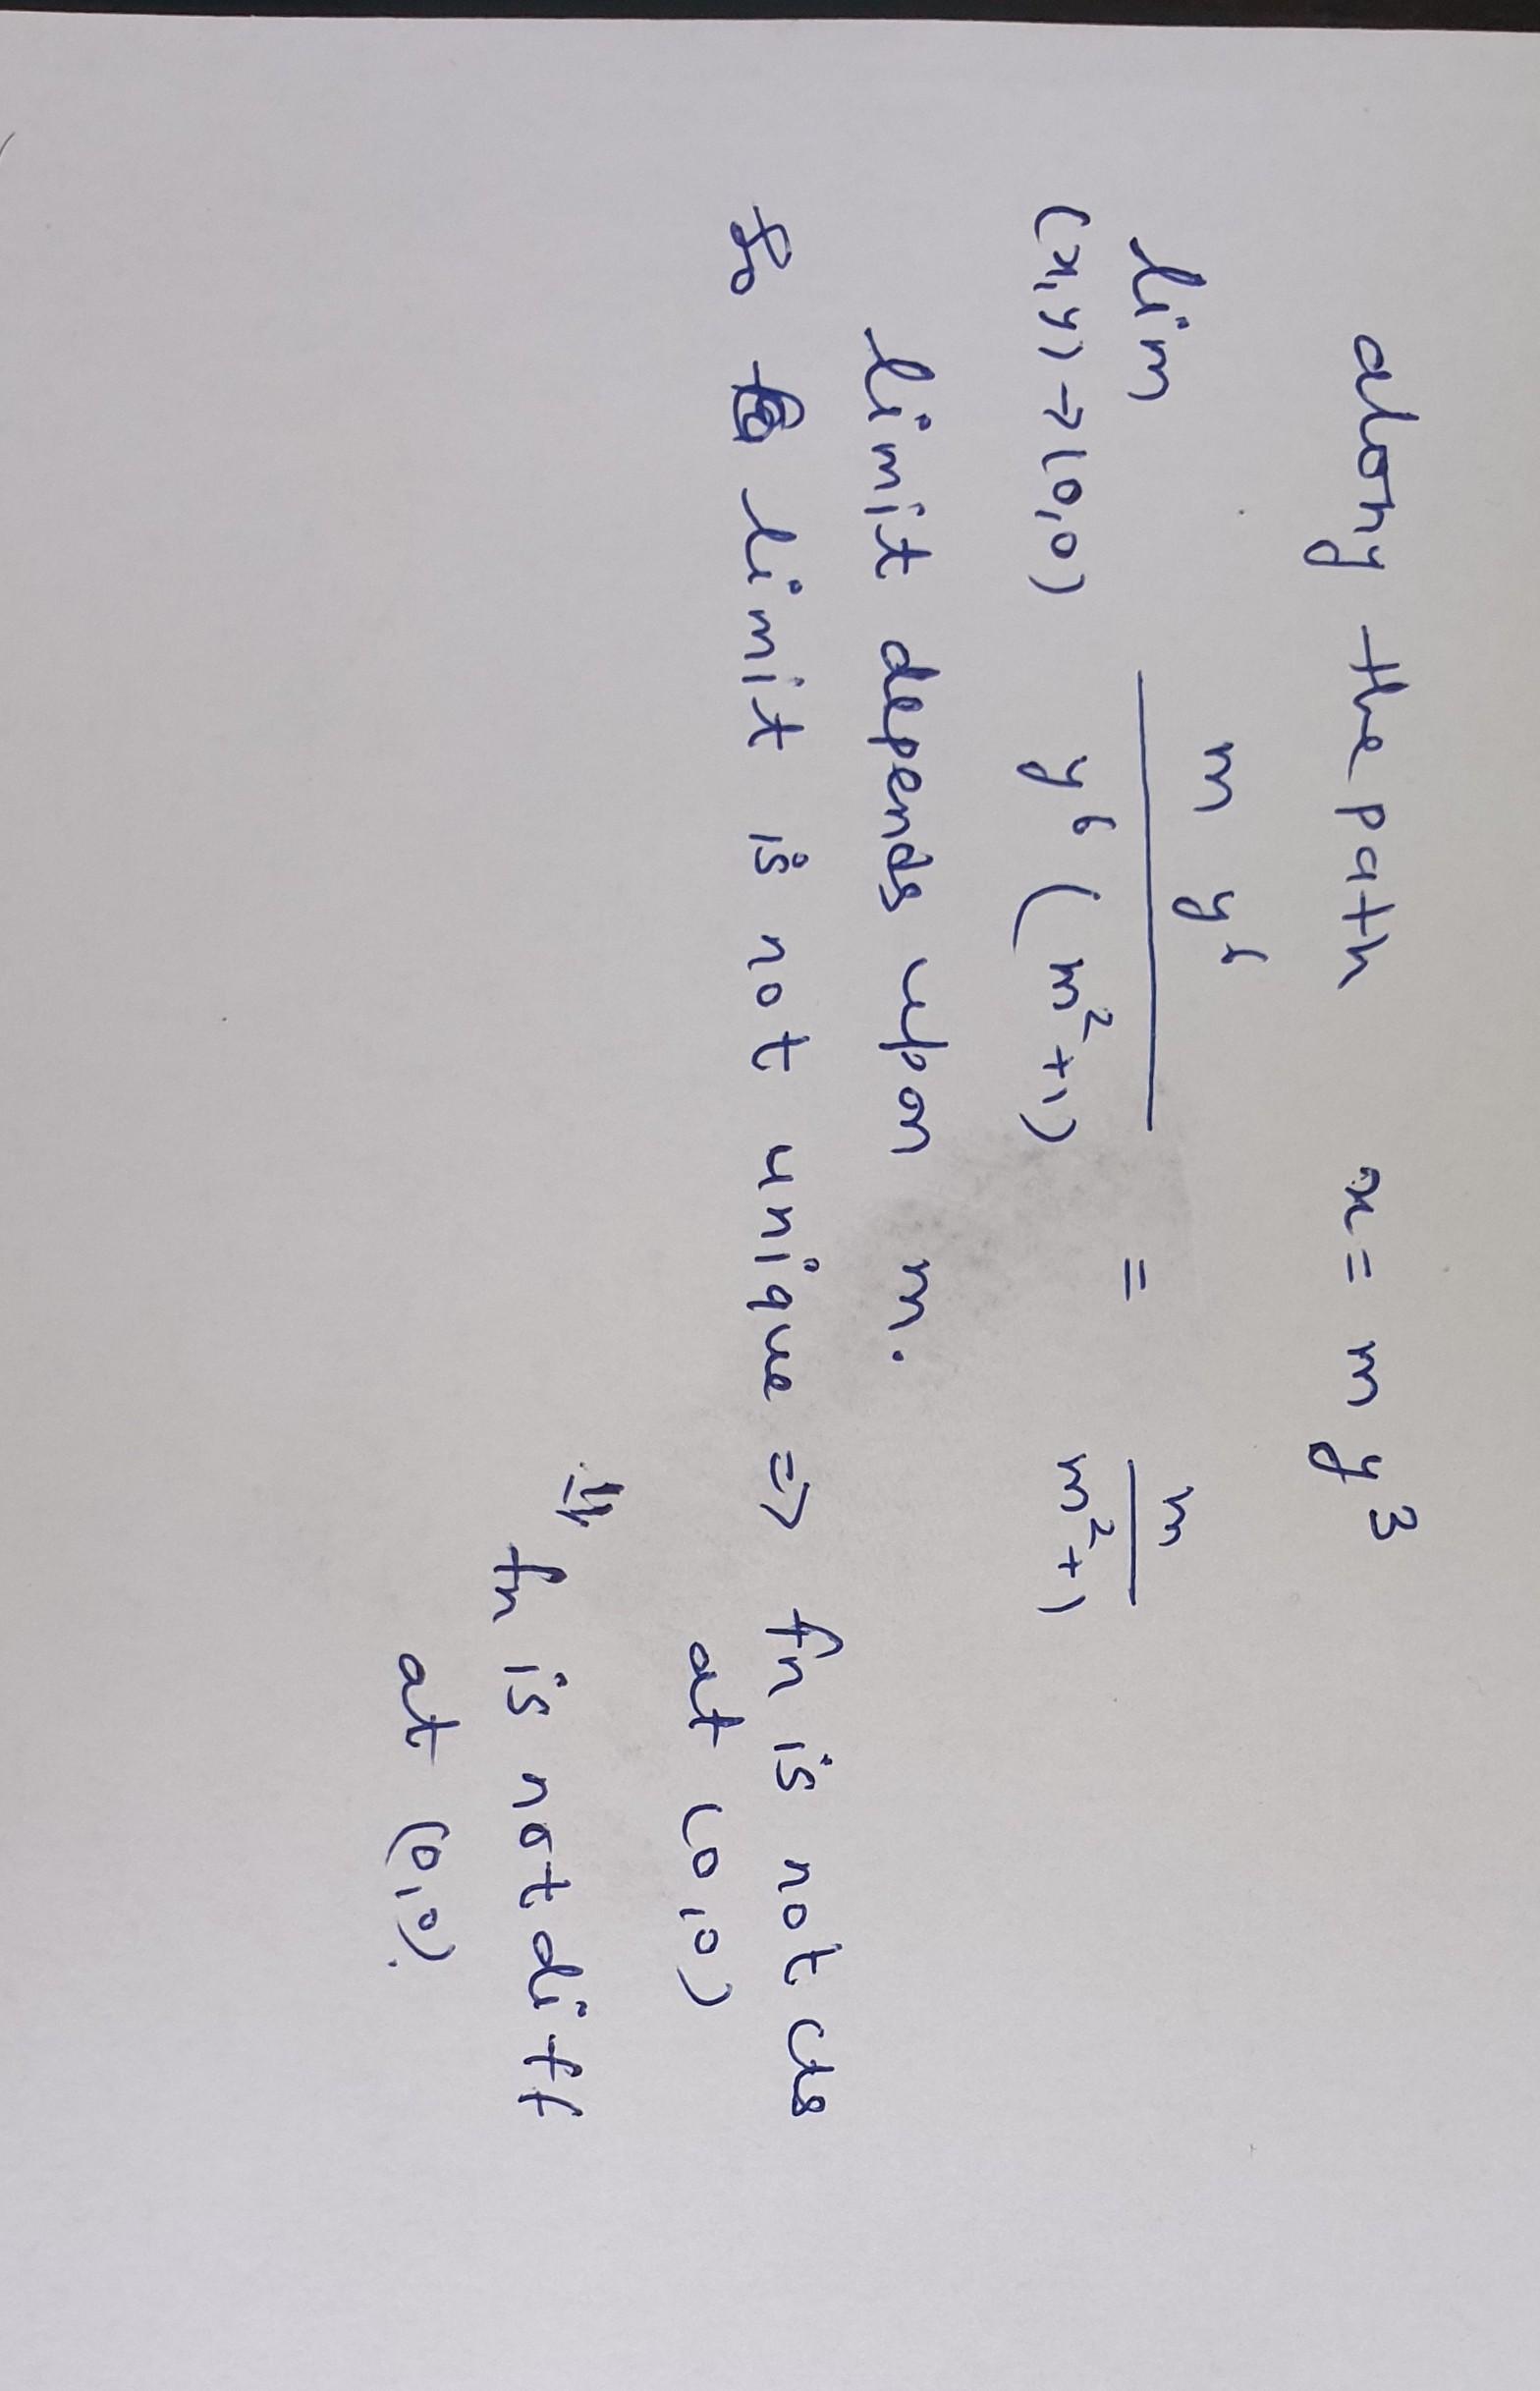 along the path x = m y³
lim (x,y)→(0,0) m y⁶ / y⁶ (m²+1) = m / m²+1
limit depends upon m.
So limit is not unique ⇒ fn is not cts
at (0,0)
⇓ fn is not diff
at (0,0).